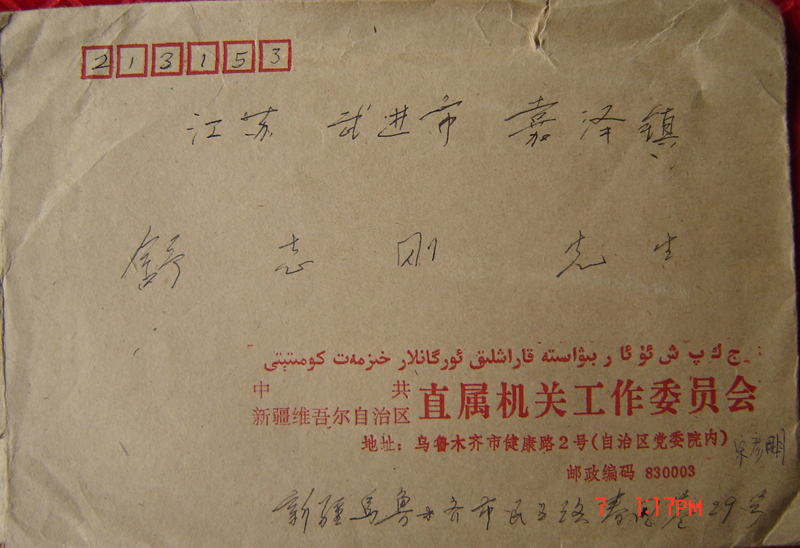 213153
江苏 武进市 嘉泽镇
舒志刚 先生
ج ك پ ش ئۇ ئا ر بىۋاسىتە قاراشلىق ئورگانلار خىزمەت كومىتېتى
中共
新疆维吾尔自治区 直属机关工作委员会
地址：乌鲁木齐市健康路2号(自治区党委院内)
邮政编码 830003
新疆乌鲁木齐市民主路 29号
7 1:17PM